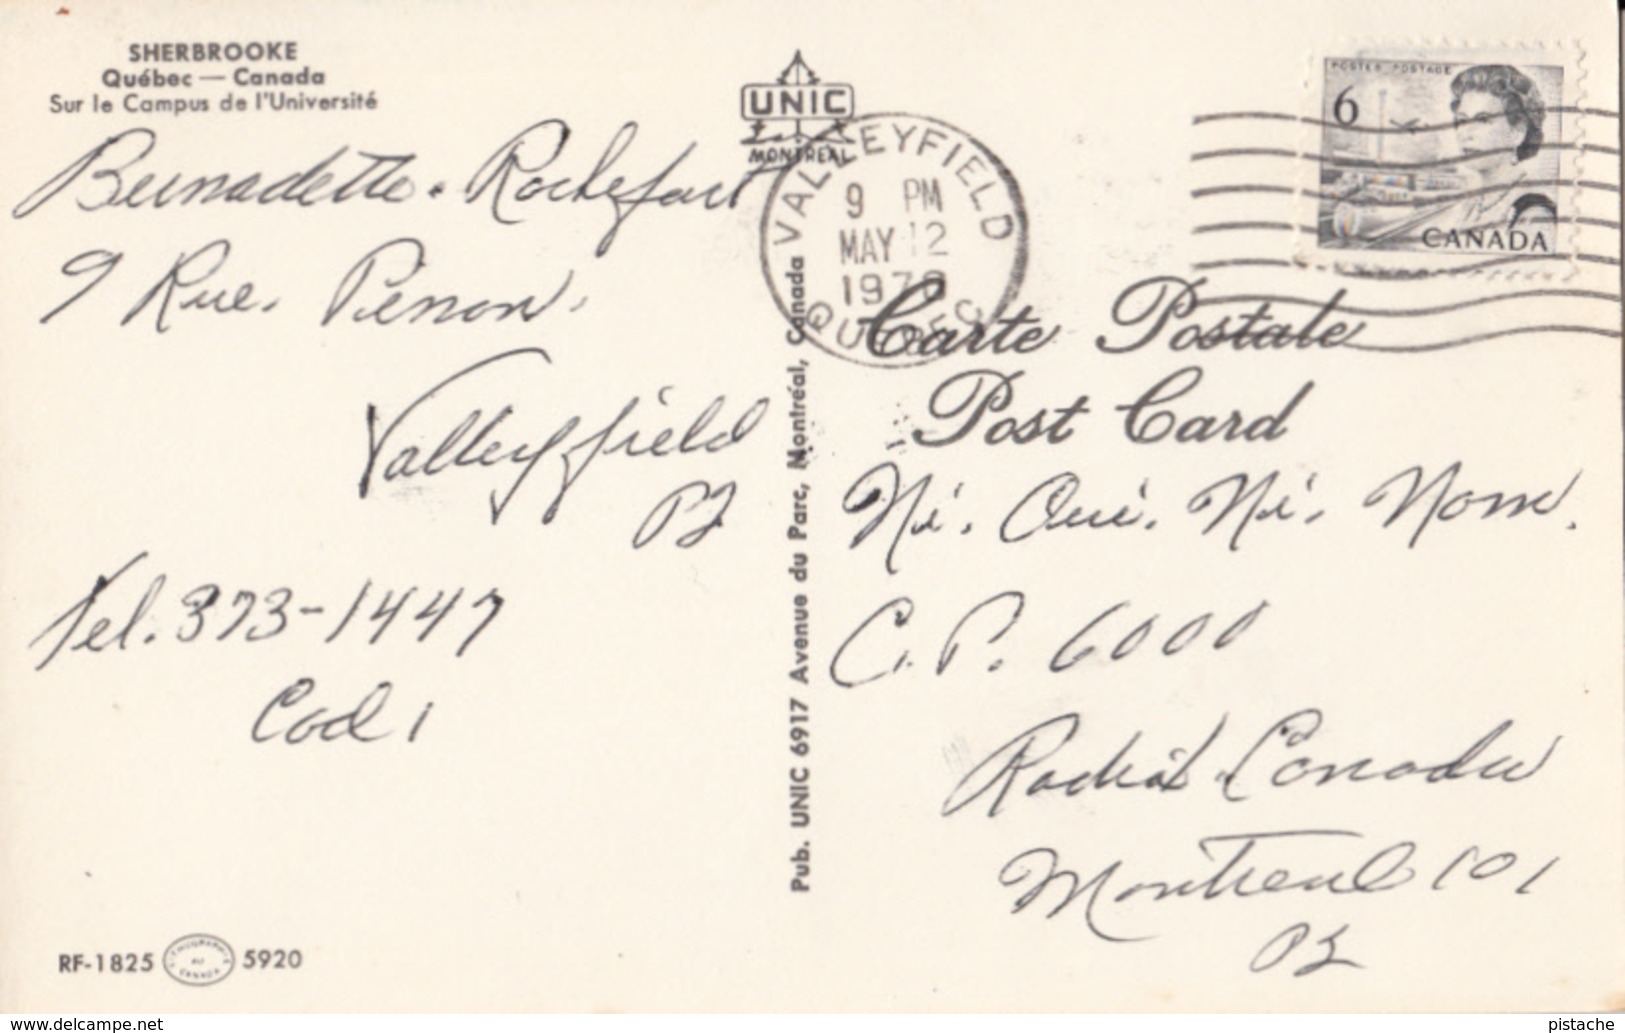 SHERBROOKE
Québec — Canada
Sur le Campus de l'Université
Bernadette. Rochefort
9 Rue. Pénon.
Valleyfield
PQ
Tel. 373-1447
Cod 1
RF-1825
5920
UNIC
MONTREAL
Pub. UNIC 6917 Avenue du Parc, Montréal, Canada
VALLEYFIELD
9 PM
MAY 12
QUEBEC
POSTES POSTAGE
6
CANADA
Carte Postale
Post Card
Ni. Oui. Ni. Nom.
C.P. 6000
Radio Canada
Montreal 101
PQ
delcampe.net
pistache